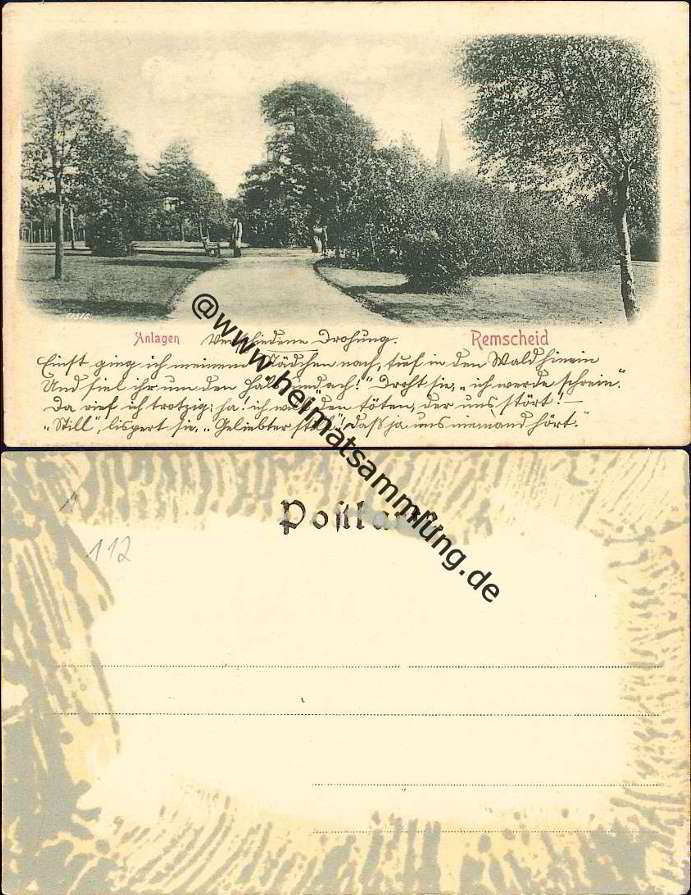 Anlagen Verschiedene Drohung. Remscheid
Einst ging ich meinem Mädchen nach, tief in den Wald hinein
Und fiel ihr um den Hals, und ach!" Droht sie, „ich werde schrein".
Da rief ich trotzig, ha! ich will den töten, der uns stört! –
„Still", lispert sie, „Geliebter still", daß ja uns niemand hört."
@www.heimatsammlung.de
Postkarte
112